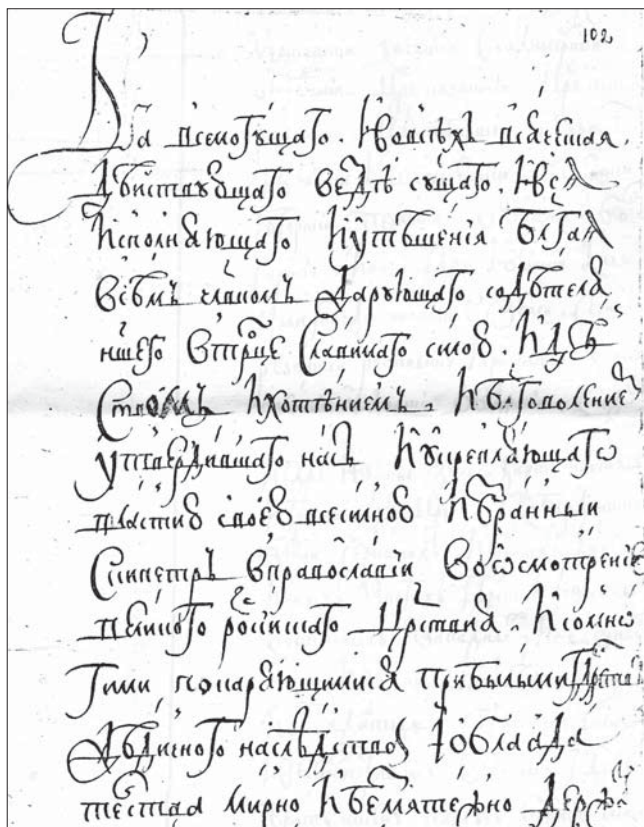 102
Бга всемогущаго. И во всѣхъ всяческая.
Дѣйствующаго вездѣ сущаго. И вся
Исполняющаго И утѣшенія блгая
всѣмъ члвкомъ Дарующаго содѣтеля
ншего втрцѣ Славимаго силою. И дѣй
Ствомъ И хотѣниемъ. И блговолением
утвердившаго насъ И укрепляющаго
властию своею всесилною Избранныи
Скипетръ вправославіи во осмотрение
великого росиискаго Црствия И со мно
Гими покаряющимися прибылыми Гдрства
Дѣдичного наслѣдства И облада
телства мирно И безмятежно держа